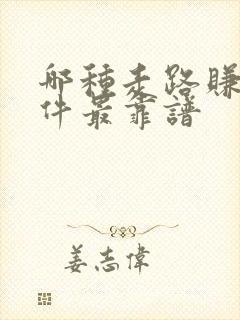 哪種走路賺
件最靠譜
姜志偉